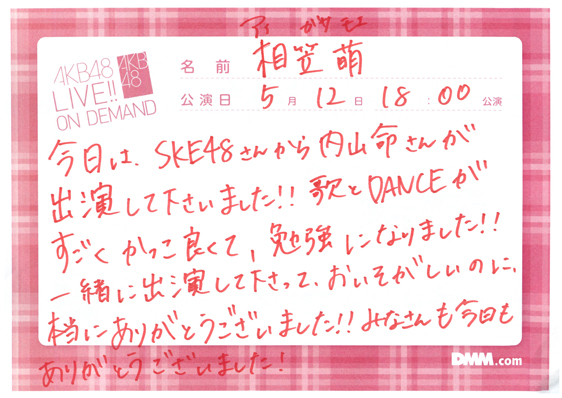 アイ がサ モエ
AKB48
LIVE!!
ON DEMAND
AKB
48
名前 相笠萌
公演日 5月 12日 18:00 公演
今日は、SKE48さんから内山命さんが
出演して下さいました!! 歌とDANCEが
すごくかっこ良くて、勉強になりました!!
一緒に出演して下さって、おいそがしいのに、
本当にありがとうございました!! みなさんも今日も
ありがとうございました!
DMM.com